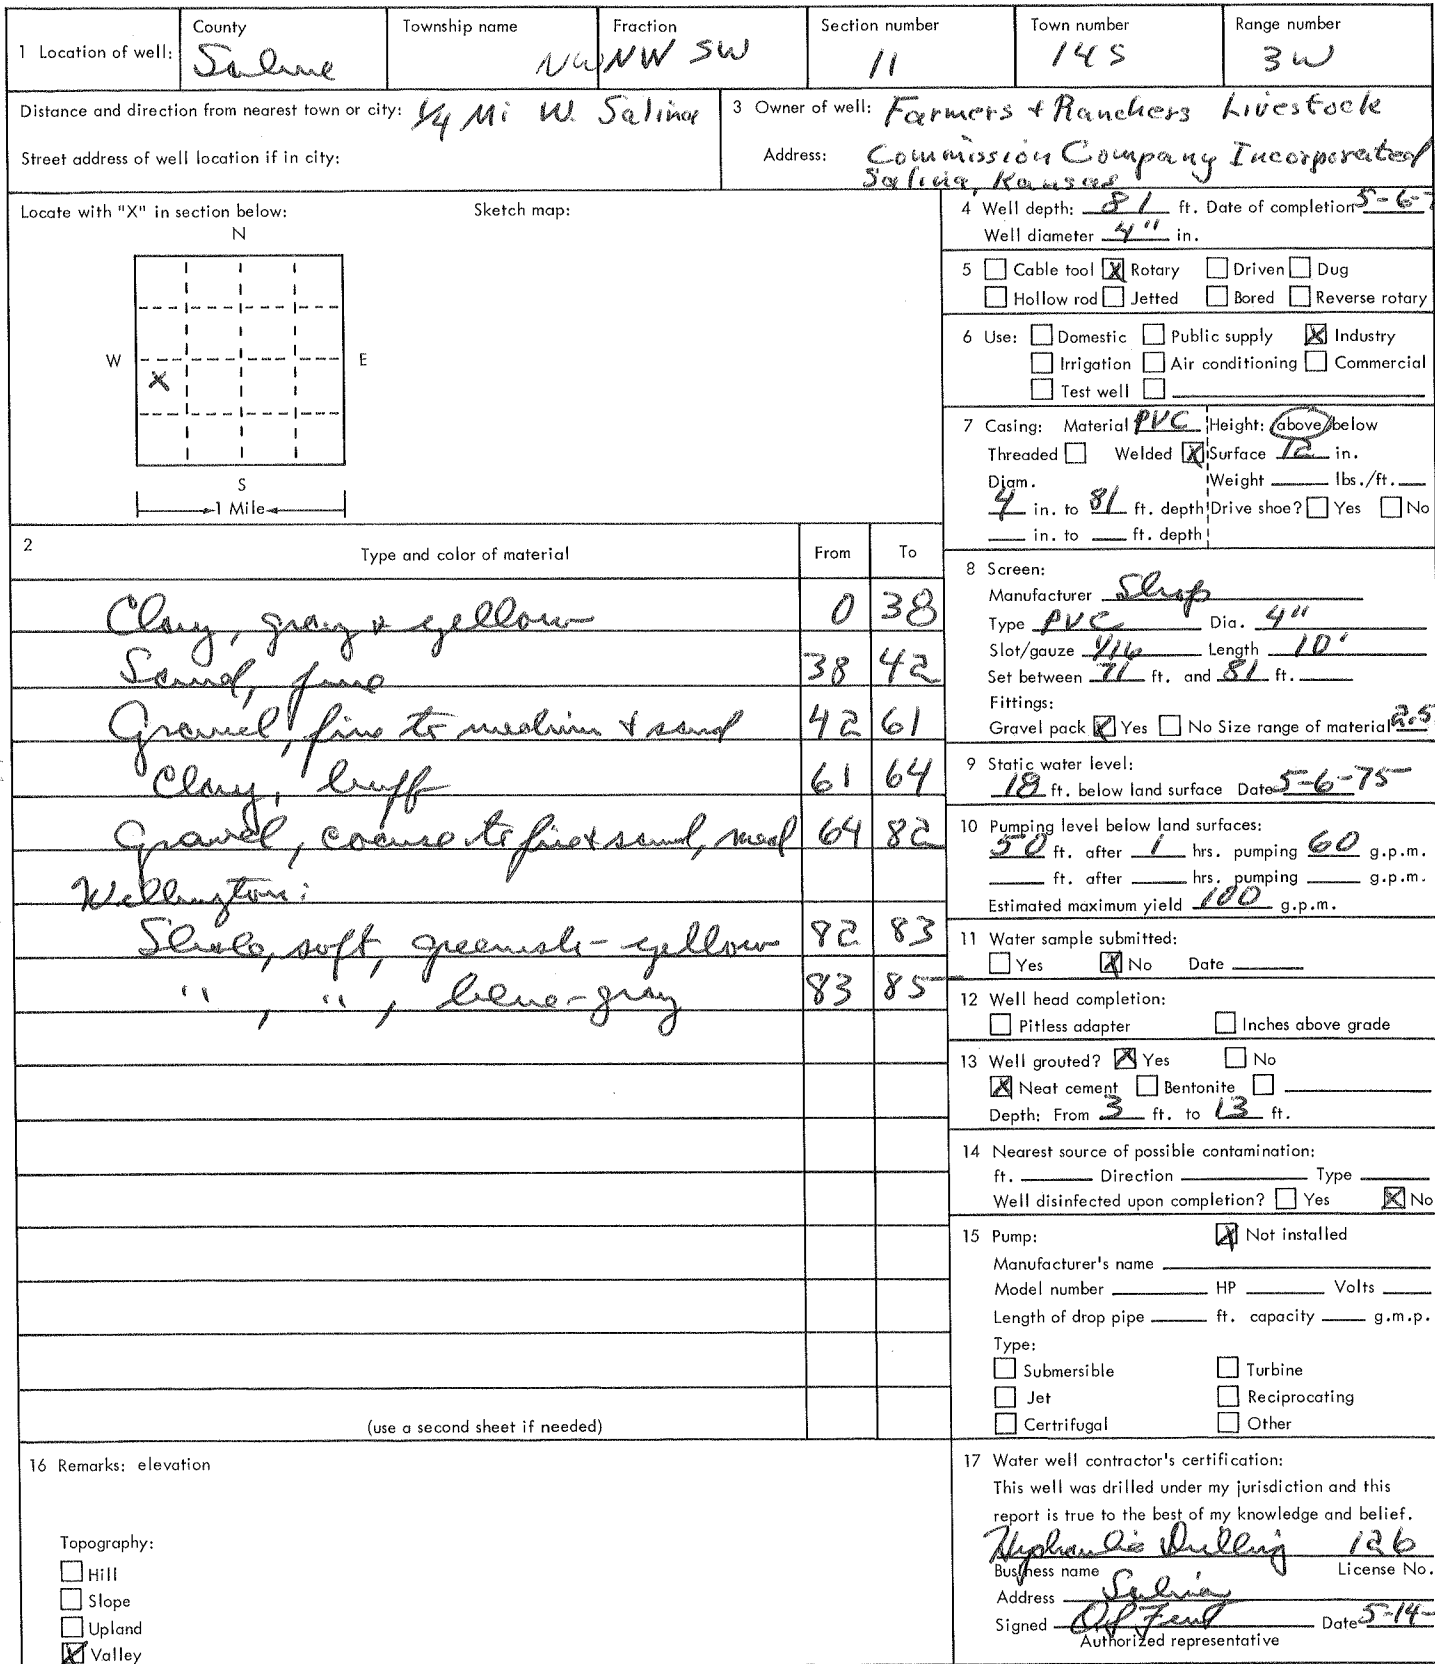 1 Location of well:
County
Saline
Township name
Fraction
NW NW SW
Section number
11
Town number
14 S
Range number
3 W
Distance and direction from nearest town or city: 1/4 Mi W. Salina
Street address of well location if in city:
3 Owner of well: Farmers + Ranchers Livestock
Address: Commission Company Incorporated
Salina, Kansas
Locate with "X" in section below:
Sketch map:
N
W
E
X
S
1 Mile
2
Type and color of material
From
To
Clay, gray & yellow 0 38
Sand, fine 38 42
Gravel, fine to medium & sand 42 61
Clay, buff 61 64
Gravel, coarse to fine & sand, med 64 82
Wellington:
Shale, soft, greenish-yellow 82 83
" , " , blue-gray 83 85
(use a second sheet if needed)
4 Well depth: 81 ft. Date of completion 5-6-7
Well diameter 4" in.
5 Cable tool X Rotary Driven Dug
Hollow rod Jetted Bored Reverse rotary
6 Use: Domestic Public supply X Industry
Irrigation Air conditioning Commercial
Test well
7 Casing: Material PVC Height: above/below
Threaded Welded X Surface 12 in.
Diam. Weight lbs./ft.
4 in. to 81 ft. depth Drive shoe? Yes No
in. to ft. depth
8 Screen:
Manufacturer Shop
Type PVC Dia. 4"
Slot/gauze 1/16 Length 10'
Set between 71 ft. and 81 ft.
Fittings:
Gravel pack X Yes No Size range of material 2.5
9 Static water level:
18 ft. below land surface Date 5-6-75
10 Pumping level below land surfaces:
50 ft. after 1 hrs. pumping 60 g.p.m.
ft. after hrs. pumping g.p.m.
Estimated maximum yield 100 g.p.m.
11 Water sample submitted:
Yes X No Date
12 Well head completion:
Pitless adapter Inches above grade
13 Well grouted? X Yes No
X Neat cement Bentonite
Depth: From 3 ft. to 13 ft.
14 Nearest source of possible contamination:
ft. Direction Type
Well disinfected upon completion? Yes X No
15 Pump: X Not installed
Manufacturer's name
Model number HP Volts
Length of drop pipe ft. capacity g.m.p.
Type:
Submersible Turbine
Jet Reciprocating
Certrifugal Other
16 Remarks: elevation
Topography:
Hill
Slope
Upland
X Valley
17 Water well contractor's certification:
This well was drilled under my jurisdiction and this
report is true to the best of my knowledge and belief.
Hydraulic Drilling 126
Business name License No.
Address Salina
Signed Fent Date 5-14-
Authorized representative